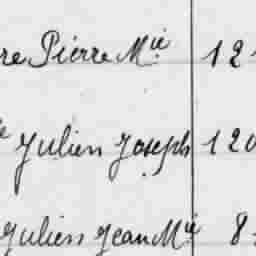 re Pierre Mie 12
e Julien Joseph 120
Julien Jean Mie 8